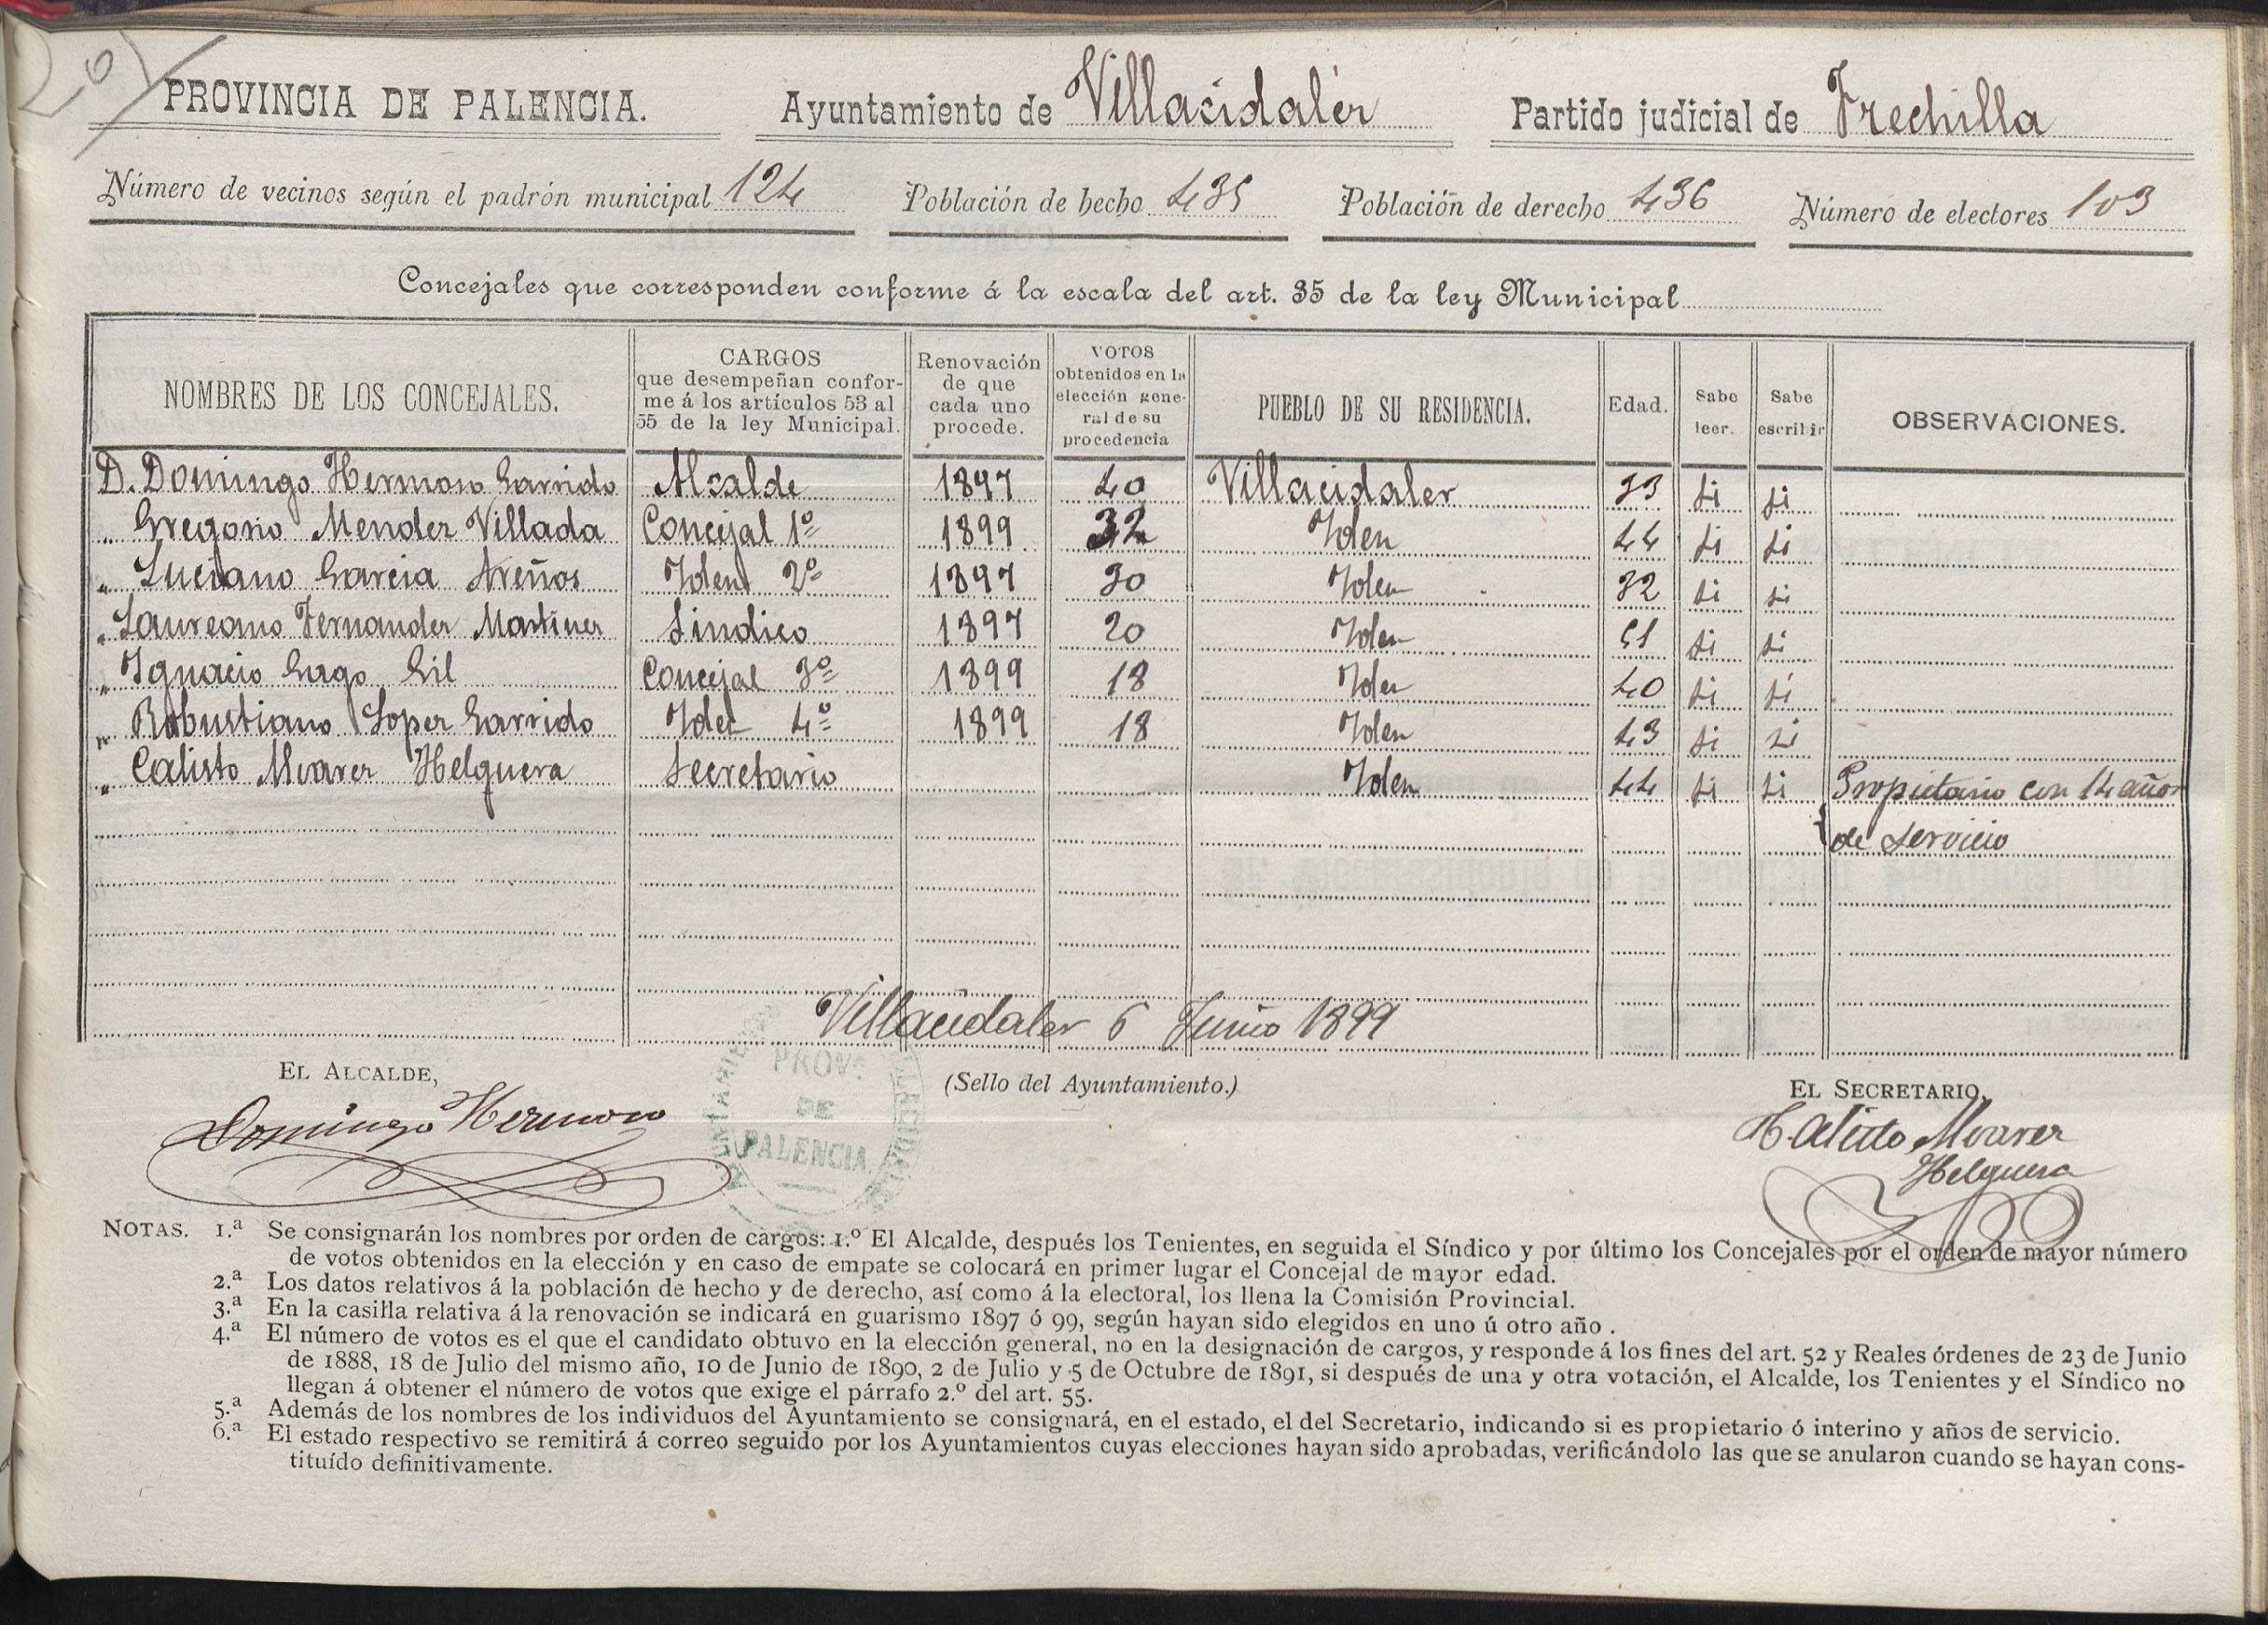 207
PROVINCIA DE PALENCIA. Ayuntamiento de Villacidalér Partido judicial de Frechilla
Número de vecinos según el padrón municipal 124 Población de hecho 435 Población de derecho 436 Número de electores 103
Concejales que corresponden conforme á la escala del art. 35 de la ley Municipal
NOMBRES DE LOS CONCEJALES. CARGOS que desempeñan confor- me á los artículos 53 al 55 de la ley Municipal. Renovación de que cada uno procede. VOTOS obtenidos en la elección gene- ral de su procedencia PUEBLO DE SU RESIDENCIA. Edad. Sabe leer. Sabe escribir OBSERVACIONES.
D. Domingo Hermoso Garrido Alcalde 1897 40 Villacidaler 33 si si
" Gregorio Mendez Villada Concejal 1º 1899 32 Iden 44 si si
" Luciano Garcia Areños Iden 2º 1897 30 Iden 32 si si
" Laureano Fernandez Martinez Sindico 1897 20 Iden 51 si si
" Ignacio Gago Gil Concejal 3º 1899 18 Iden 40 si si
" Robustiano Lopez Garrido Iden 4º 1899 18 Iden 43 si si
" Calisto Alvarez Helguera Secretario Iden 44 si si Propietario con 14 años
de servicio
Villacidaler 6 Junio 1899
EL ALCALDE, (Sello del Ayuntamiento.) EL SECRETARIO,
Domingo Hermoso
PROV.ª
DE
PALENCIA.
Calisto Alvarez
Helguera
NOTAS. 1.ª Se consignarán los nombres por orden de cargos: 1.º El Alcalde, después los Tenientes, en seguida el Síndico y por último los Concejales por el orden de mayor número
de votos obtenidos en la elección y en caso de empate se colocará en primer lugar el Concejal de mayor edad.
2.ª Los datos relativos á la población de hecho y de derecho, así como á la electoral, los llena la Comisión Provincial.
3.ª En la casilla relativa á la renovación se indicará en guarismo 1897 ó 99, según hayan sido elegidos en uno ú otro año .
4.ª El número de votos es el que el candidato obtuvo en la elección general, no en la designación de cargos, y responde á los fines del art. 52 y Reales órdenes de 23 de Junio
de 1888, 18 de Julio del mismo año, 10 de Junio de 1890, 2 de Julio y 5 de Octubre de 1891, si después de una y otra votación, el Alcalde, los Tenientes y el Síndico no
llegan á obtener el número de votos que exige el párrafo 2.º del art. 55.
5.ª Además de los nombres de los individuos del Ayuntamiento se consignará, en el estado, el del Secretario, indicando si es propietario ó interino y años de servicio.
6.ª El estado respectivo se remitirá á correo seguido por los Ayuntamientos cuyas elecciones hayan sido aprobadas, verificándolo las que se anularon cuando se hayan cons-
tituído definitivamente.